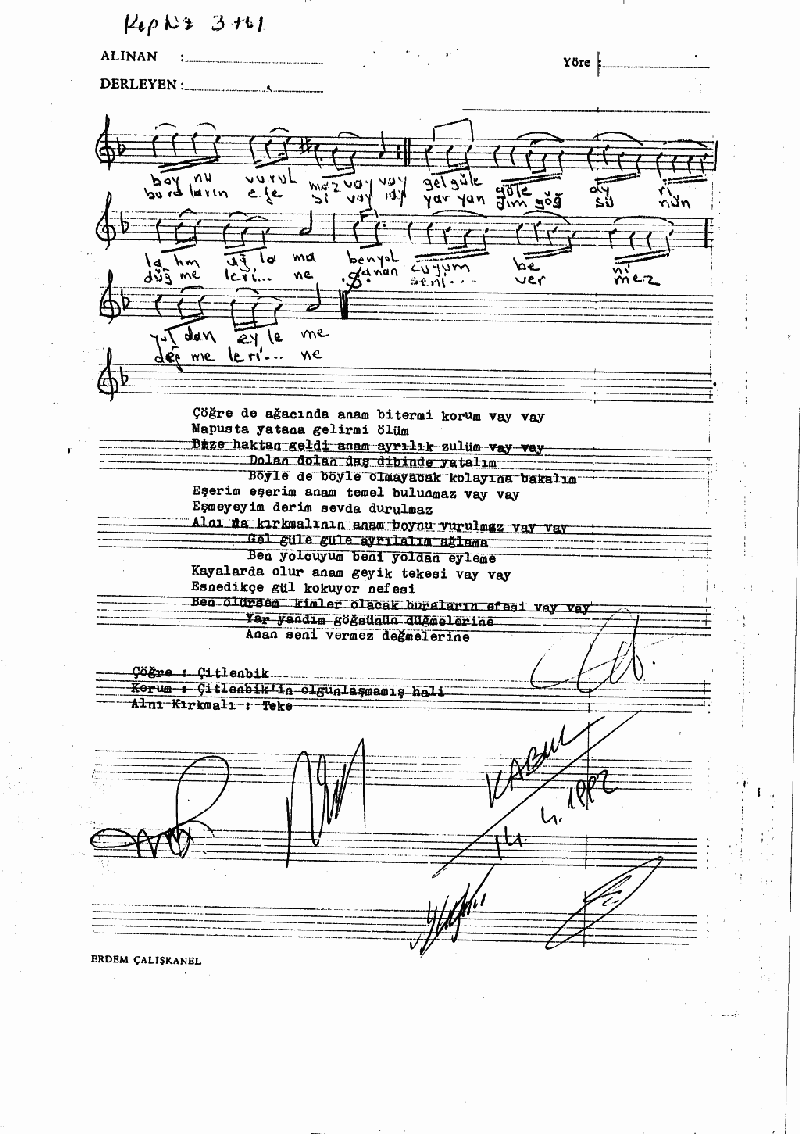 ALINAN :
Yöre :
DERLEYEN :
boy nu vurul maz vay vay gel güle güle ay rı
bura ların efe si vay vay yar yan dım göğ sü nün
la lım ağ la ma ben yol cuyum be ni
düğ me leri... ne anan seni... ver mez
yol dan ey le me
değ me leri... ne
Çöğre de ağacında anam bitermi korum vay vay
Mapusta yatana gelirmi ölüm
Bize haktan geldi anam ayrılık zulüm vay vay
Dolan dolan dağ dibinde yatalım
Böyle de böyle olmayacak kolayına bakalım
Eşerim eşerim anam temel bulunmaz vay vay
Eşmeyeyim derim sevda durulmaz
Alnı da kırkmalının anam boynu vurulmaz vay vay
Gel güle güle ayrılalım ağlama
Ben yolcuyum beni yoldan eyleme
Kayalarda olur anam geyik tekesi vay vay
Esnedikçe gül kokuyor nefesi
Ben ölürsem kimler olacak buraların efesi vay vay
Yar yandım göğsünün düğmelerine
Anan seni vermez değmelerine
Çöğre : Çitlenbik
Korum : Çitlenbik'in olgunlaşmamış hali
Alnı Kırkmalı : Teke
KABUL
14.4.1992
ERDEM ÇALIŞKANEL